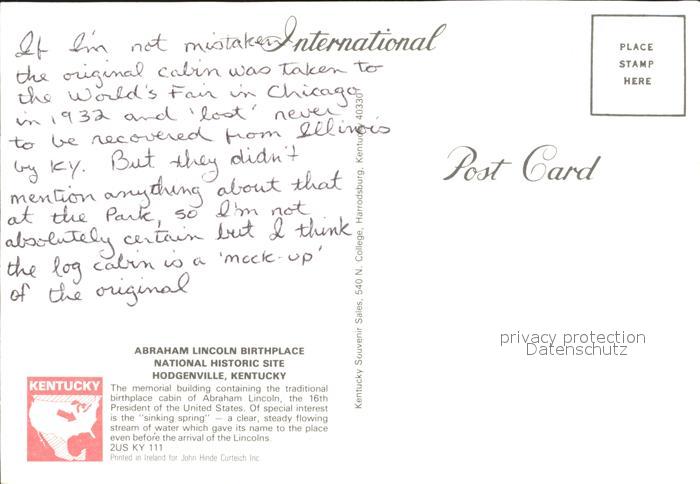 If I'm not mistaken International
the original cabin was taken to
the World's Fair in Chicago
in 1932 and 'lost' never
to be recovered from Illinois
by KY. But they didn't
mention anything about that
at the Park, so I'm not
absolutely certain but I think
the log cabin is a 'mock-up'
of the original
PLACE
STAMP
HERE
Post Card
Kentucky Souvenir Sales, 540 N. College, Harrodsburg, Kentucky 40330
privacy protection
Datenschutz
ABRAHAM LINCOLN BIRTHPLACE
NATIONAL HISTORIC SITE
HODGENVILLE, KENTUCKY
KENTUCKY
The memorial building containing the traditional
birthplace cabin of Abraham Lincoln, the 16th
President of the United States. Of special interest
is the "sinking spring" – a clear, steady flowing
stream of water which gave its name to the place
even before the arrival of the Lincolns.
2US KY 111
Printed in Ireland for John Hinde Curteich Inc.